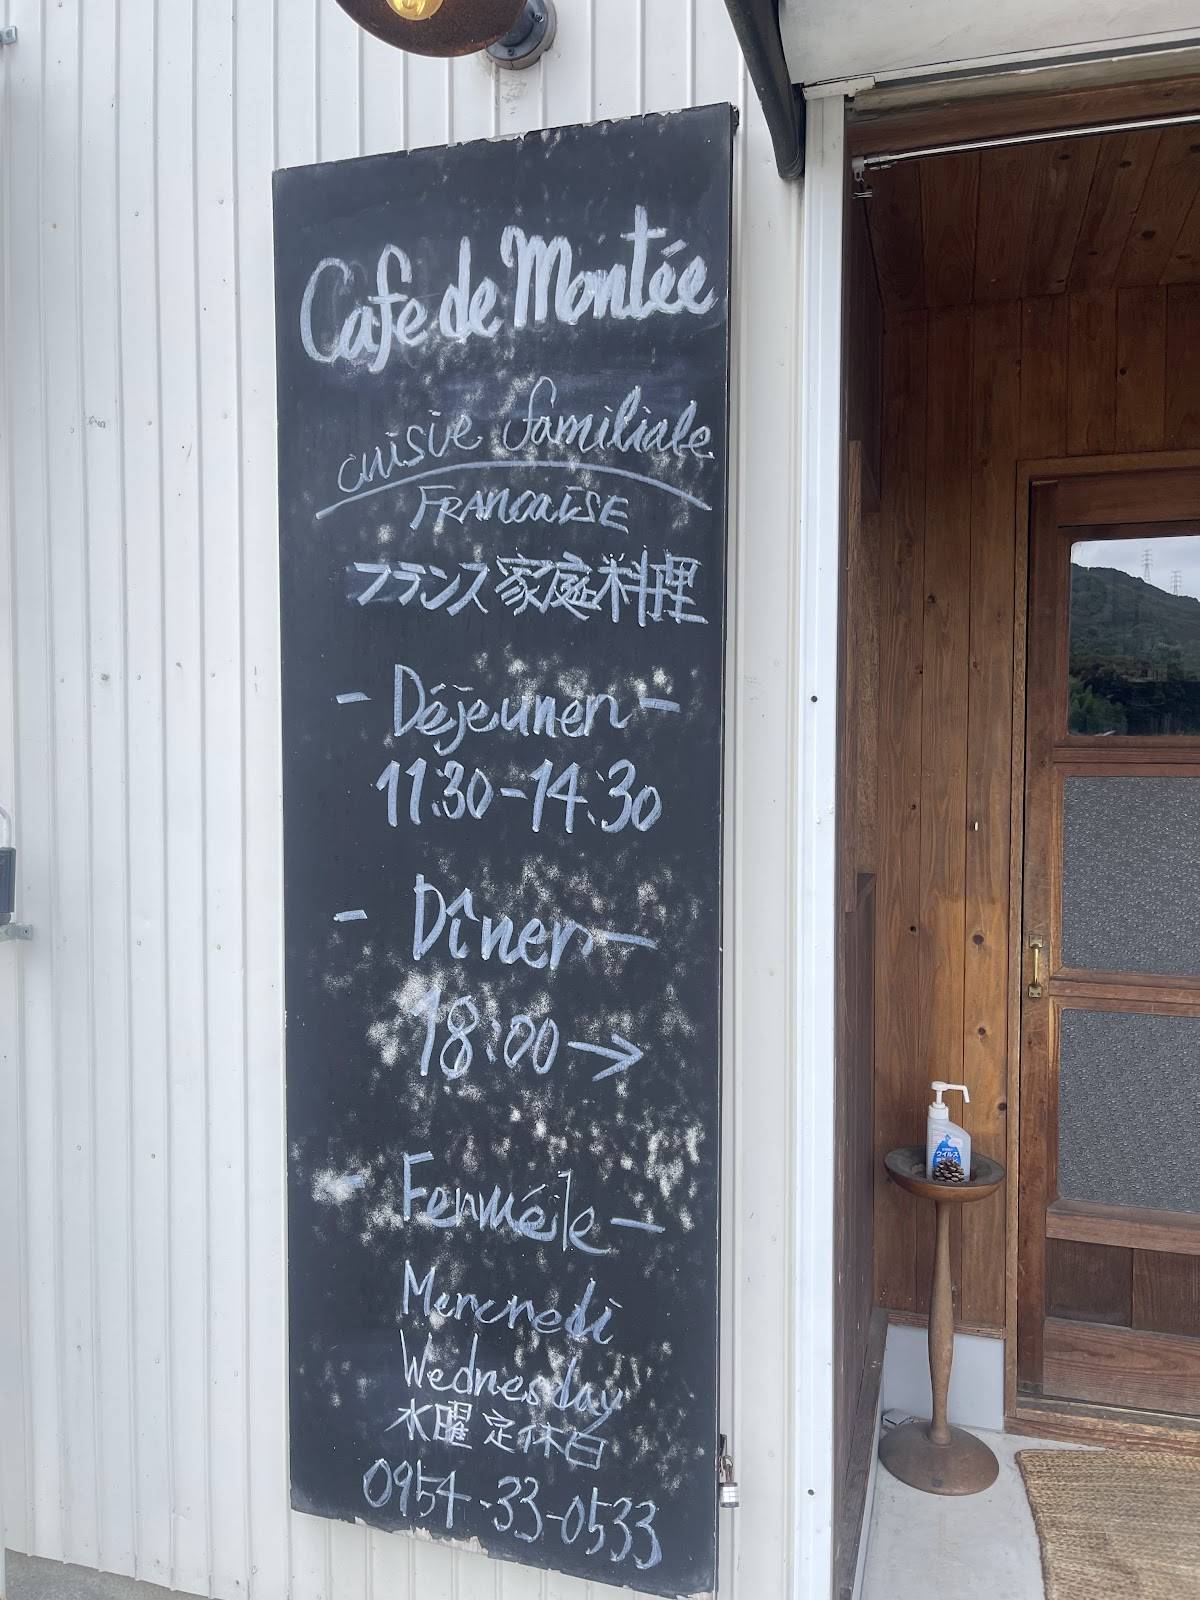 Cafe de Montée
cuisie familiale
FRANCAISE
フランス家庭料理
- Déjeuner -
11:30-14:30
- Dîner -
18:00→
- Ferméle -
Mercredi
Wednesday
水曜定休日
0954-33-0533
ウイルス